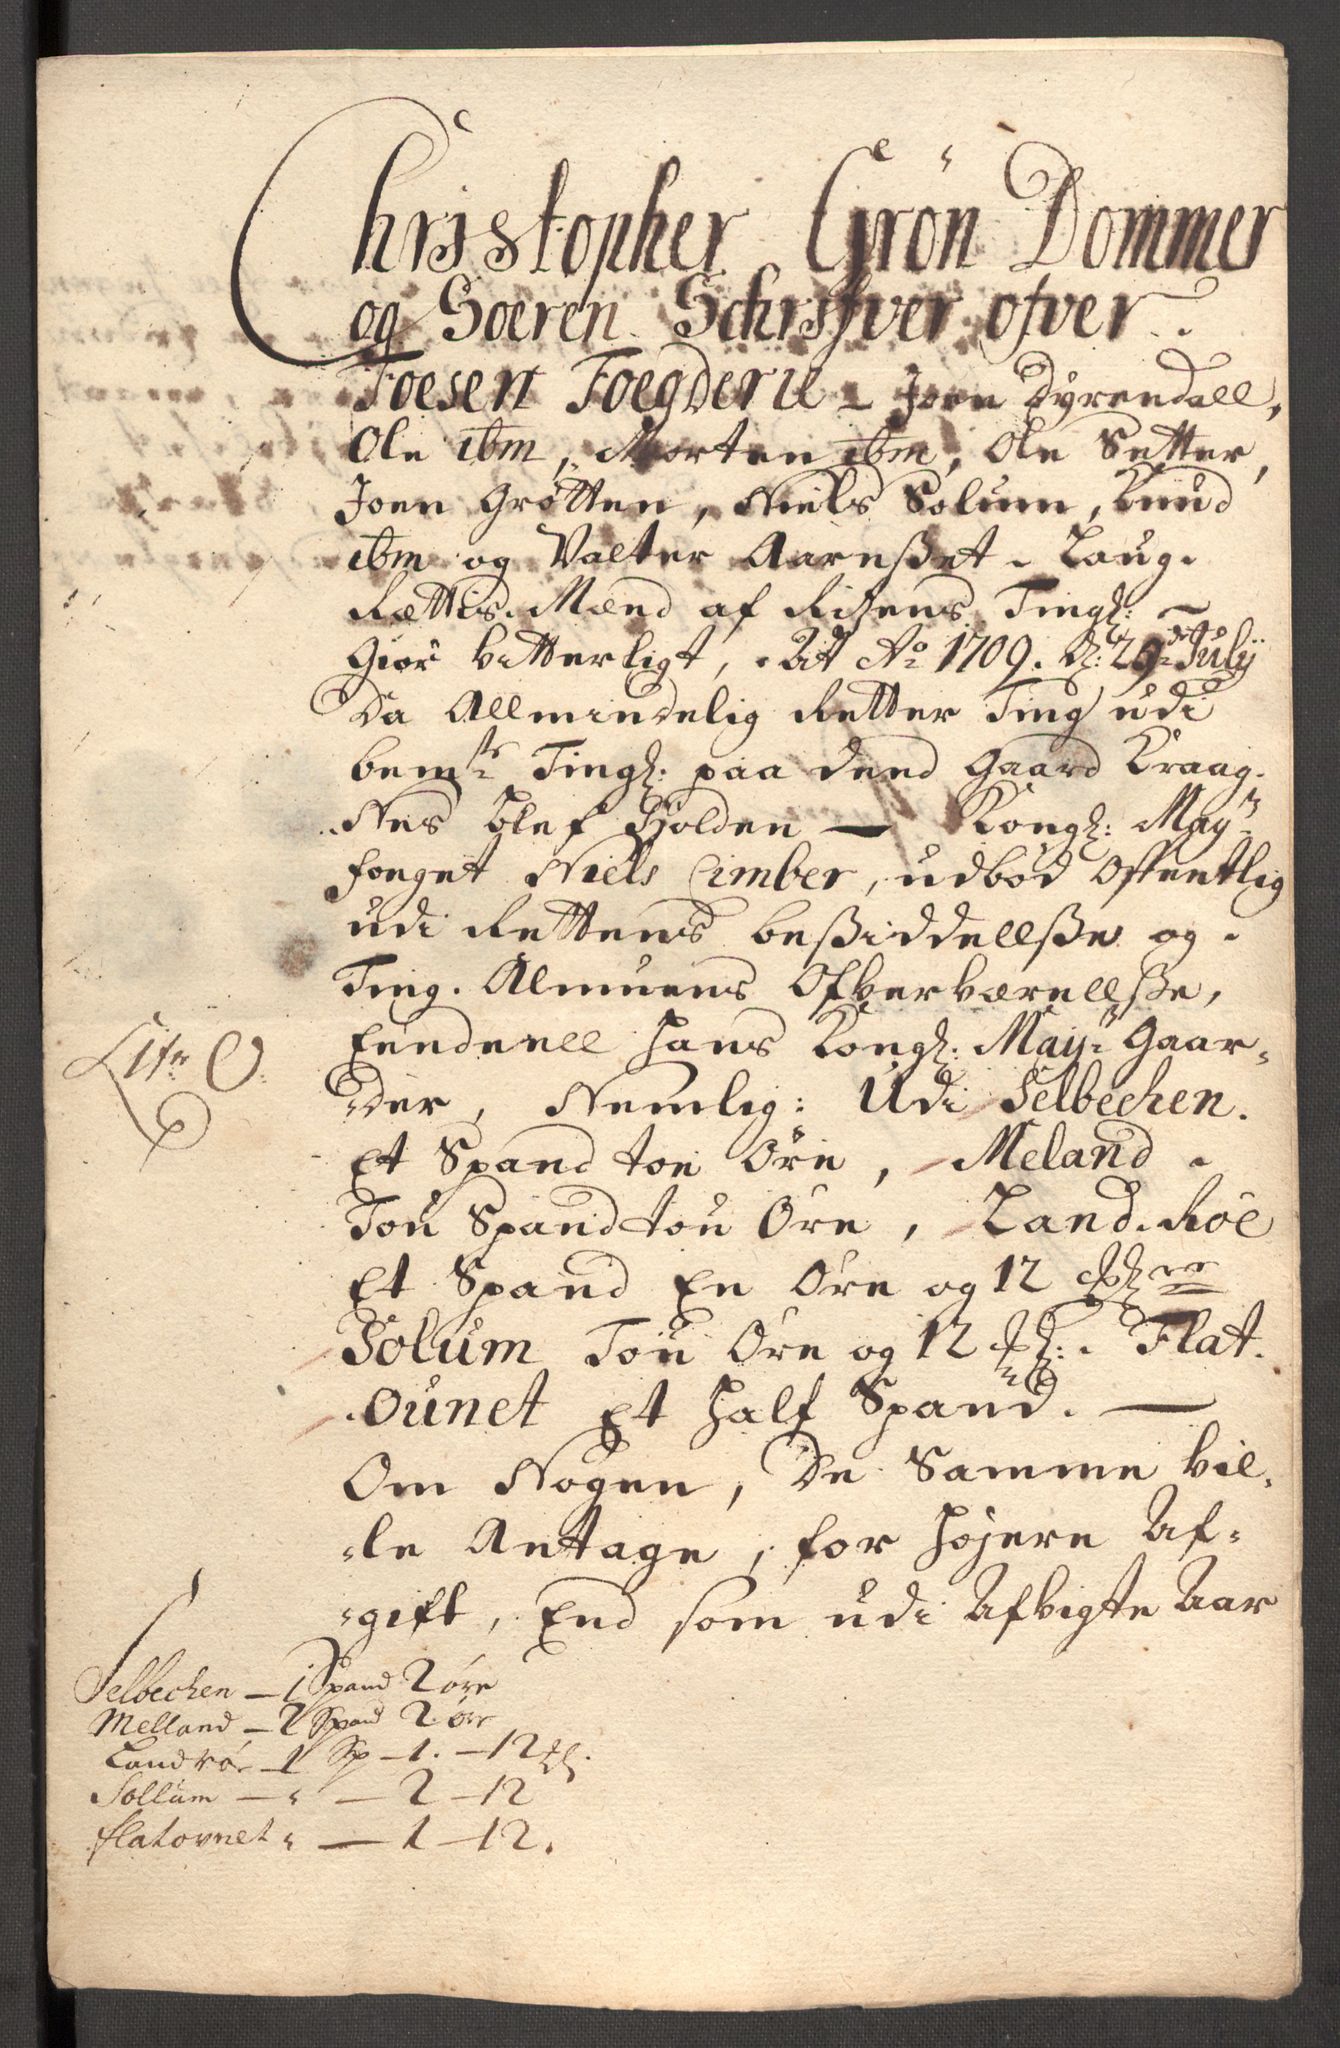 Christopher Grön Dommer
og Soeren Schrifver ofver
Foesen Foegderie – Joen Dyrendall,
Ole ibm, Morten ibm, Ole Setter,
Joen Grøtten, Niels Solum, Knud
ibm og Valter Aarnßet. Laug.
Rættis. Mænd af Rißens Tingl: –
Giør vitterligt, At Ao 1709. d: 29de Julij
Da Allmindelig Retter Ting udi
bemte Tingl: paa dend Gaard Kraag.
Nes blef Holden — Kongl: Mayts
Foeget Niels Cimber, udbød Offentlig
udi Rettens beßiddellße og
Ting. Almuens Ofververellße,
Eendeell Hans Kongl: Mayts Gaar-
der, Nemlig: Udi Selbechen.
Et Spand toe Öre, Meland
Tou Spand tou Öre, Land. Röe
Et Spand En Öre og 12
Solum Tou Öre og 12 Flat.
Ounet Et Half Spand. —
Om Nogen, De Samme vil-
-le Antage, for Høyere Af-
-gift, End som udi Afvigte Aar
Litr O:
Selbechen – 1 Spand 2 öre
Melland – 2 Spand 2 ör
Landrö – 1 Sp – 1. – 12
Sollum – " – 2 – 12
Flatovnet " – 1 – 12.